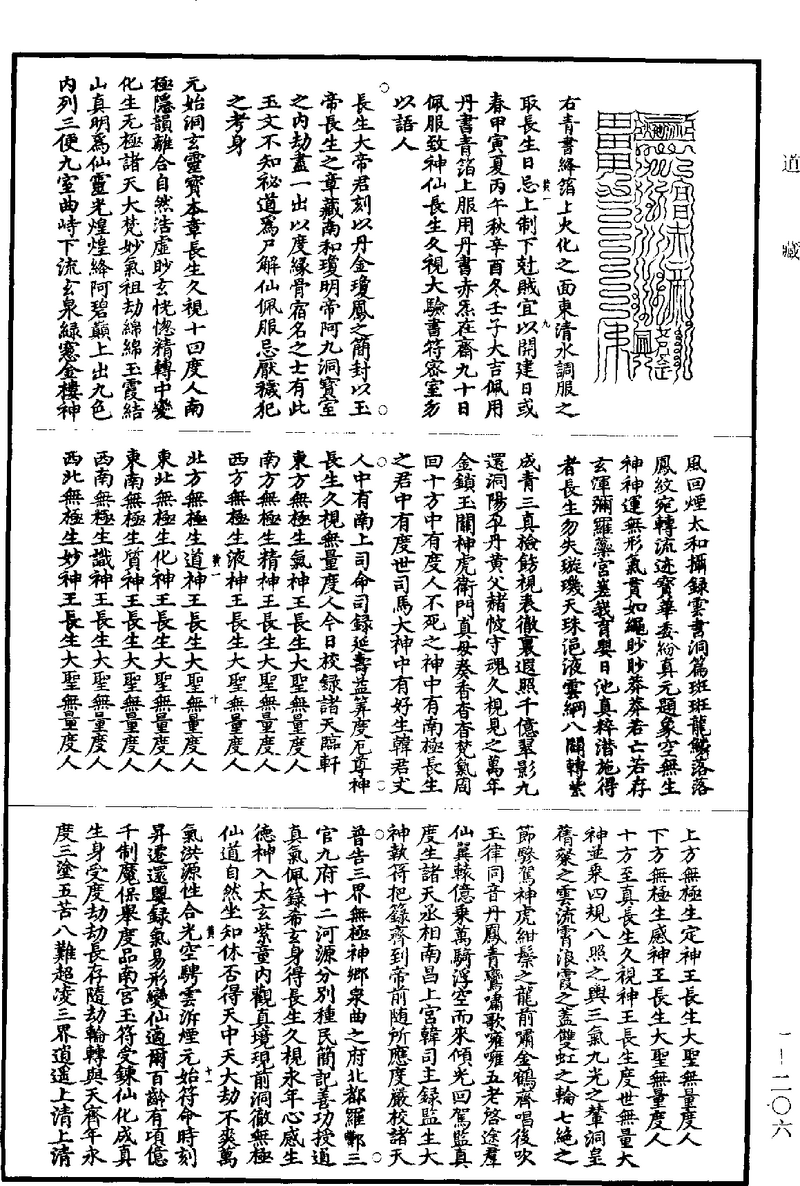 道藏
右青書絳箔上火化之面東清水調服之
取長生日忌上制下尅賊宜以開建日或
春甲寅夏丙午秋辛酉冬壬子大吉佩用
丹書青箔上服用丹書赤炁在齋九十日
佩服致神仙長生久視大驗書符密室勿
以語人
長生大帝君刻以丹金瓊鳳之簡封以玉
帝長生之章藏南和瓊明帝阿九洞寶室
之内劫盡一出以度緣骨宿名之士有此
玉文不知秘道為尸解仙佩服忌厭穢犯
之考身
元始洞玄靈寶本章長生久視十四度人南
極隱韻離合自然浩虛眇玄恍惚精轉中變
化生無極諸天大梵妙氣祖劫綿綿玉霞結
山真明為仙靈光煌煌絳阿碧巔上出九色
内列三便九室曲峙下流玄泉綠窻金樓神
風回煙太和攝錄雲書洞篇斑斑龍鱗落落
鳳紋宛轉流迹寶華紊紛真元題象空無生
神神運無形氣貫如繩眇眇莽莽若亡若存
玄渾彌羅蘂宮墓戮育嬰日池真粹潜施得
者長生勿失璇璣天珠浥液雲綱八關轉紫
成青三真檢飭視表徹裏遐照千億翠影九
還洞陽孕丹黄父赭忮守魂久視見之萬年
金鎖玉關神虎衛門真母奏香杳杳梵氣周
回十方中有度人不死之神中有南極長生
之君中有度世司馬大神中有好生韓君丈
人中有南上司命司錄延壽益筭度厄尊神
長生久視無量度人今日校錄諸天臨軒
東方無極生氣神王長生大聖無量度人
南方無極生精神王長生大聖無量度人
西方無極生液神王長生大聖無量度人
北方無極生道神王長生大聖無量度人
東北無極生化神王長生大聖無量度人
東南無極生質神王長生大聖無量度人
西南無極生識神王長生大聖無量度人
西北無極生妙神王長生大聖無量度人
上方無極生定神王長生大聖無量度人
下方無極生感神王長生大聖無量度人
十方至真長生久視神王長生度世無量大
神並乘四規八照之輿三氣九光之輦洞皇
蒨粲之雲流霄浪霞之蓋雙虹之輪七絶之
節驂駕神虎紺鬃之龍前嘯金鶴齊唱後吹
玉律同音丹鳳青鸞嘯歌嗈嗈五老啓途羣
仙翼轅億乘萬騎浮空而來傾光回駕監真
度生諸天丞相南昌上宮韓司主錄監生大
神執符把籙齊到帝前隨所應度嚴校諸天
普告三界無極神鄉泉曲之府北都羅酆三
官九府十二河源分別種民簡記善功授道
真氣佩籙希玄身得長生久視永年心感生
德神入太玄紫童内觀直境現前洞徹無極
仙道自然坐知休否得天中天大劫不爽萬
氣洪源性合光空騁雲泝煙元始符命時刻
昇遷還嬰錄氣易形變仙適爾百齡有頃億
千制魔保舉度品南宮玉符受鍊仙化成真
生身受度劫劫長存隨劫輪轉與天齊年永
度三塗五苦八難超凌三界逍遥上清上清
黄一
九
黄一
十
黄一
十一
一-二〇六